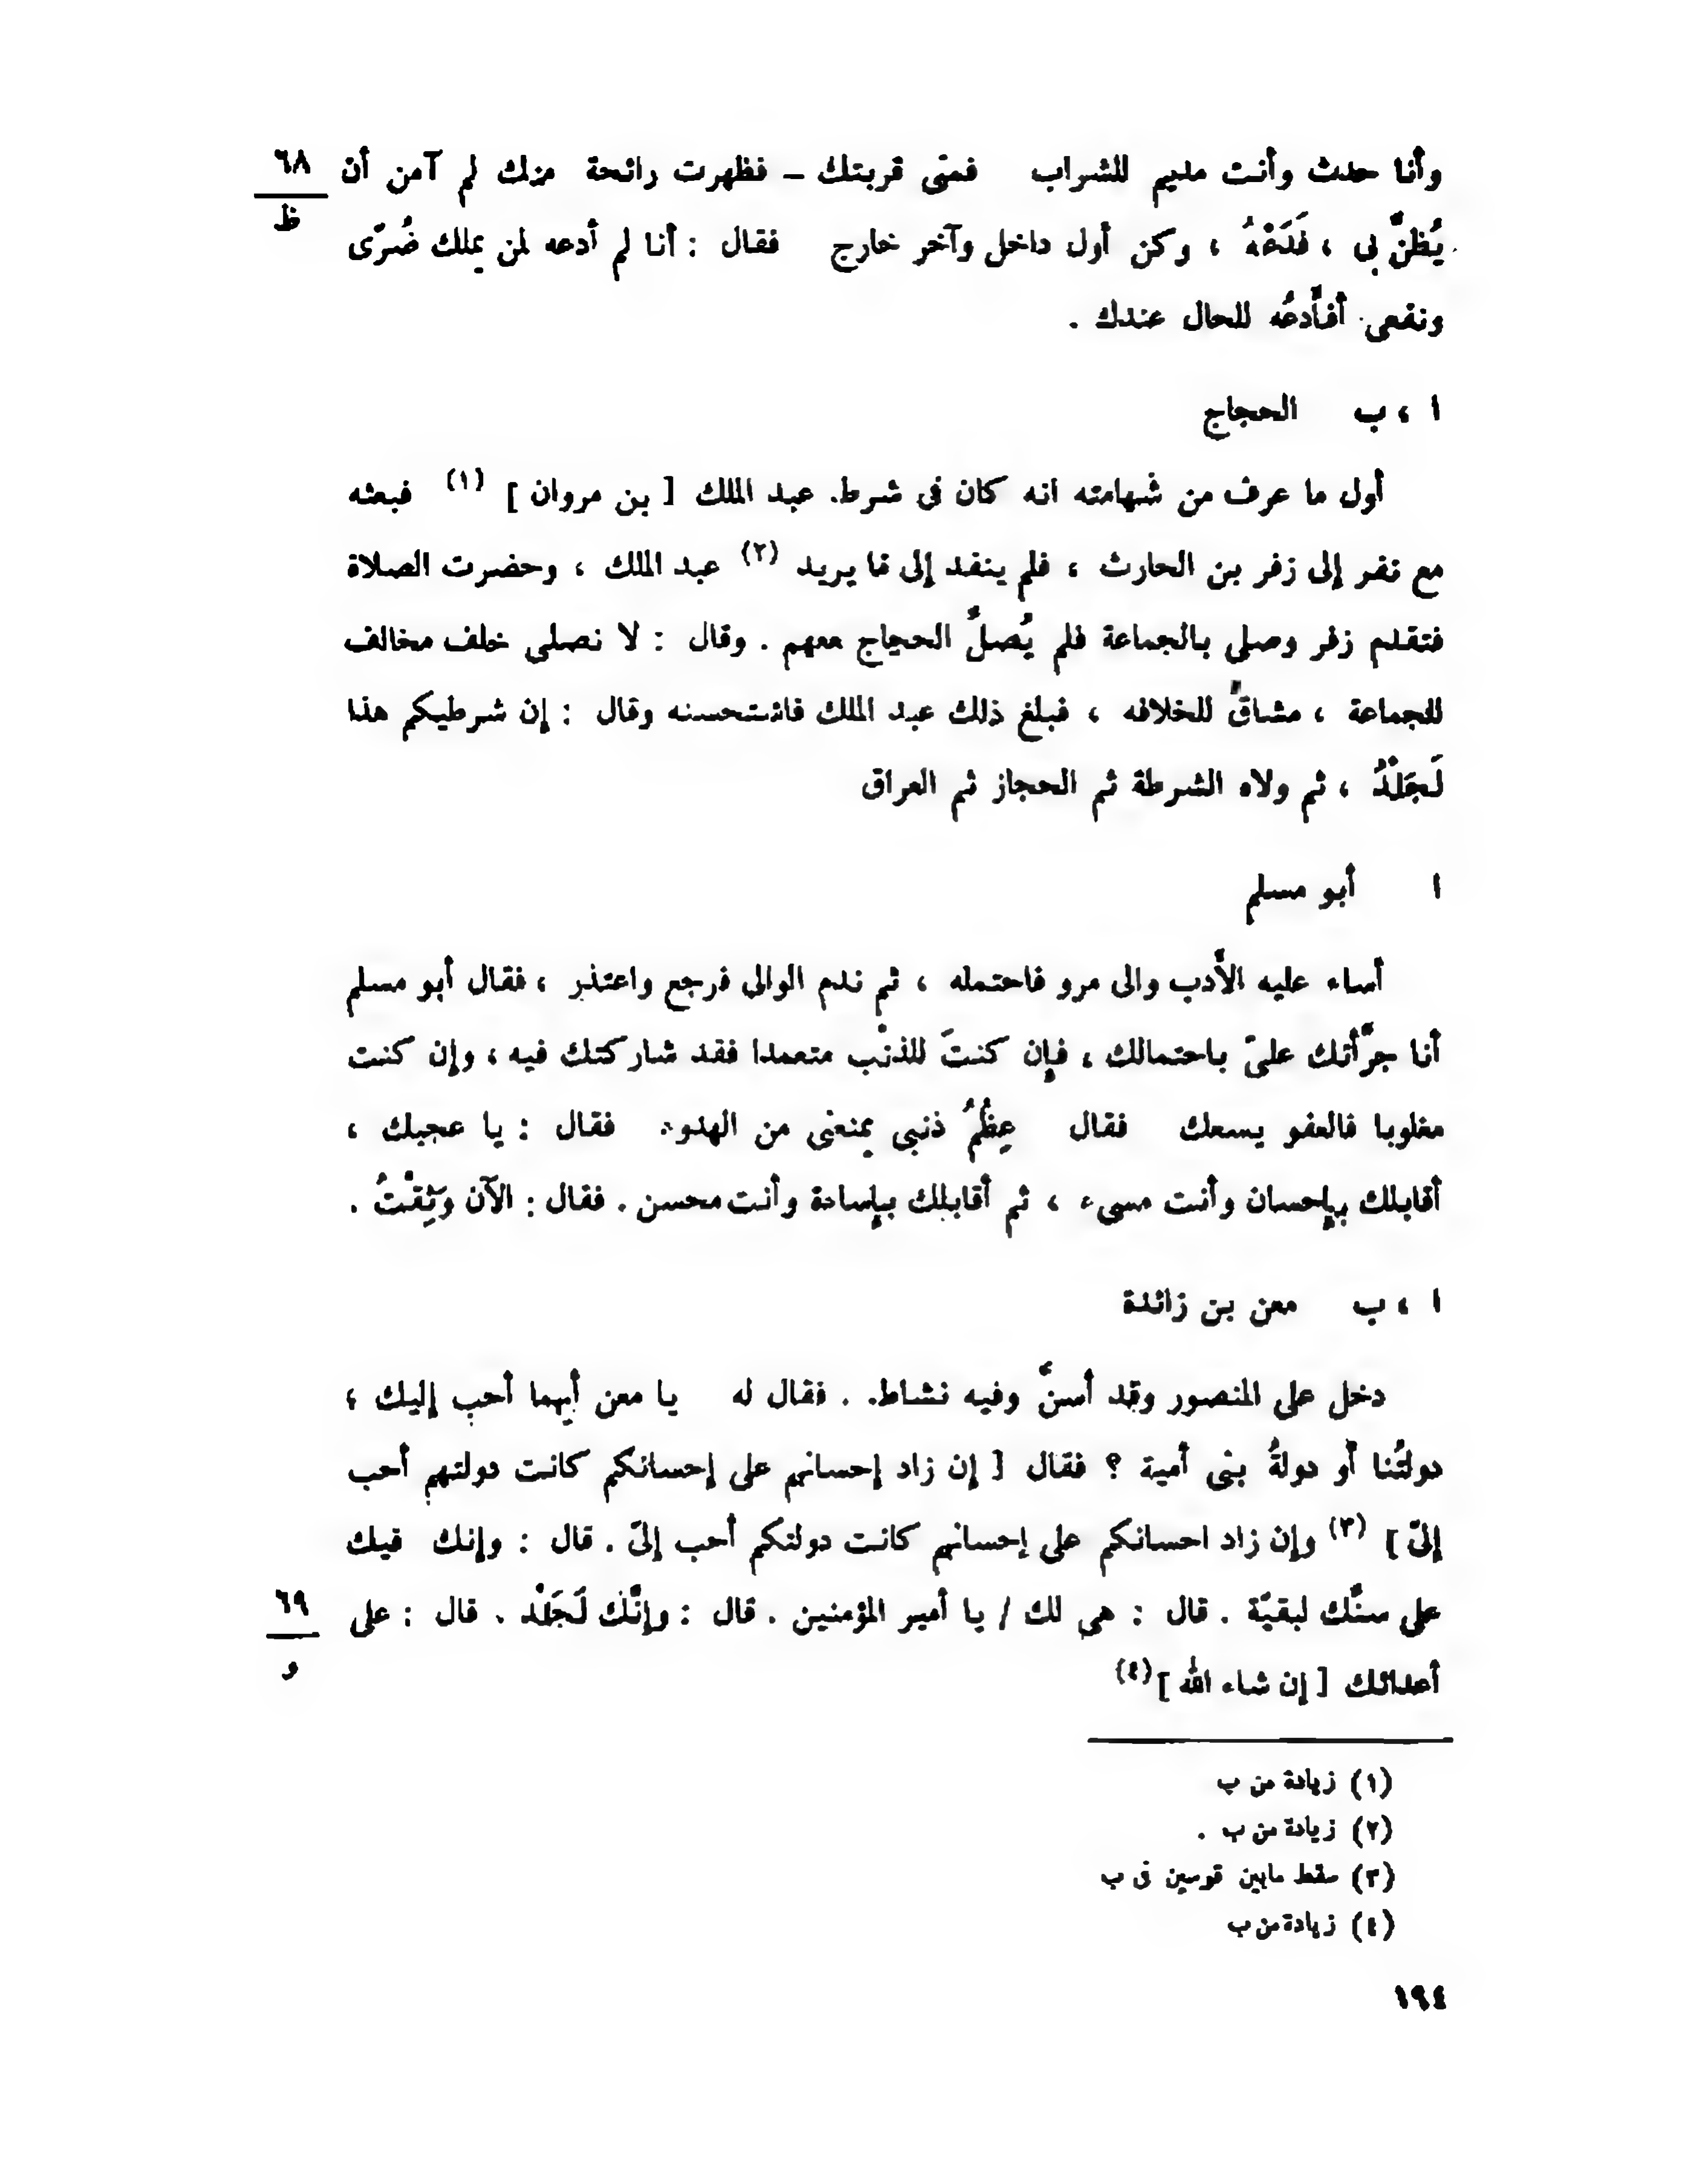 وأنا حدث وأنت مديم للشراب فمتى قربتك – فظهرت رائحة منك لم آمن أن
٦٨
ظ
يُظنَّ بى ، فَدَعْهُ ، وكن أول داخل وآخر خارج فقال : أنا لم أدعه لمن يملك ضُرّى
ونفعى أفأدعُه للحال عندك .
ا ، ب الحجاج
أول ما عرف من شهامته انه كان فى شرط عبد الملك [ بن مروان ] (١) فبعثه
مع نفر إلى زفر بن الحارث ، فلم ينفد إلى ما يريد (٢) عبد الملك ، وحضرت الصلاة
فتقدم زفر وصلى بالجماعة فلم يُصلِّ الحجاج معهم . وقال : لا نصلى خلف مخالف
للجماعة ، مشاقٍّ للخلافه ، فبلغ ذلك عبد الملك فاستحسنه وقال : إن شرطيكم هذا
لَجَلْدٌ ، ثم ولاه الشرطة ثم الحجاز ثم العراق
ا أبو مسلم
أساء عليه الأدب والى مرو فاحتمله ، ثم ندم الوالى فرجع واعتذر ، فقال أبو مسلم
أنا جرَّأتك علىّ باحتمالك ، فإن كنتَ للذنْب متعمدا فقد شاركتك فيه ، وإن كنت
مغلوبا فالعفو يسعك فقال عِظُمُ ذنبى يمنعنى من الهدوء فقال : يا عجبلك ،
أقابلك بإحسان وأنت مسىء ، ثم أقابلك بإساءة وأنت محسن . فقال : الآن وَثِقْتُ .
ا ، ب معن بن زائدة
دخل على المنصور وقد أسنَّ وفيه نشاط . فقال له يا معن أيهما أحب إليك ؛
دولتُنا أو دولةُ بنى أمية ؟ فقال [ إن زاد إحسانهم على إحسانكم كانت دولتهم أحب
إلىّ ] (٣) وإن زاد احسانكم على إحسانهم كانت دولتكم أحب إلىّ . قال : وإنك فيك
على سنَّك لبقيّة . قال : هى لك / يا أمير المؤمنين . قال : وإنَّك لَجَلْد . قال : على
٦٩
و
أعدائك [ إن شاء الله ] (٤)
(١) زيادة من ب
(٢) زيادة من ب .
(٣) سقط مابين قوسين فى ب
(٤) زيادة من ب
١٩٤